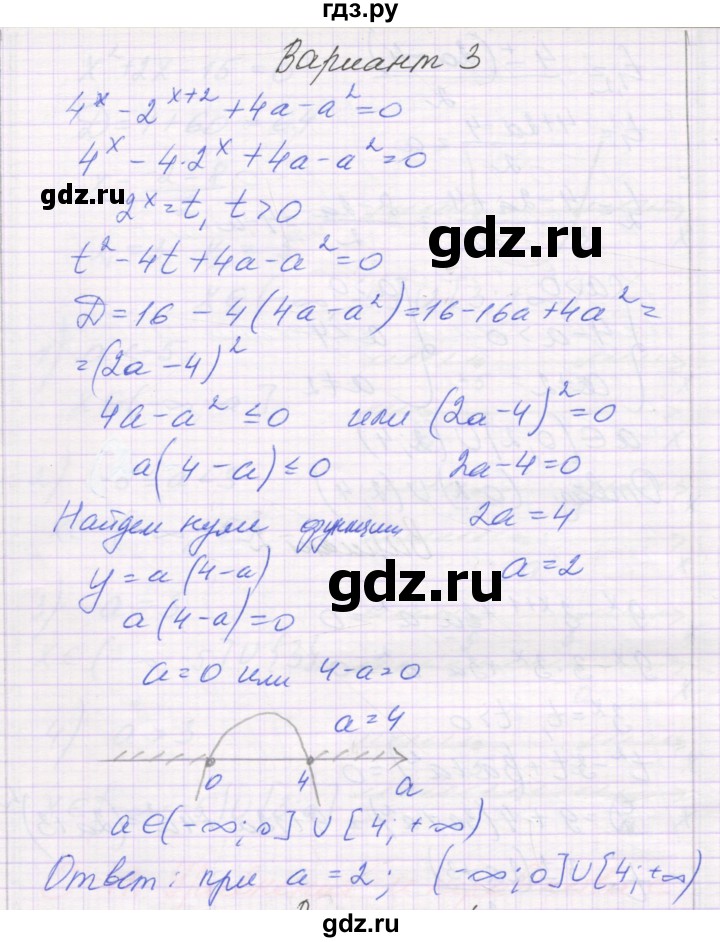 гдз.ру
Вариант 3
4^x - 2^(x+2) + 4a - a^2 = 0
4^x - 4·2^x + 4a - a^2 = 0
gdz.ru
gdz.ru
2^x = t, t > 0
t^2 - 4t + 4a - a^2 = 0
D = 16 - 4(4a - a^2) = 16 - 16a + 4a^2 =
= (2a - 4)^2
4a - a^2 ≤ 0 или (2a - 4)^2 = 0
a(4 - a) ≤ 0 2a - 4 = 0
Найдем нули функции 2a = 4
y = a(4 - a) a = 2
gdz.ru
a(4 - a) = 0
a = 0 или 4 - a = 0
a = 4
0 4 a
a ∈ (-∞; 0] ∪ [4; +∞)
Ответ: при a = 2; (-∞; 0] ∪ [4; +∞)
gdz.ru